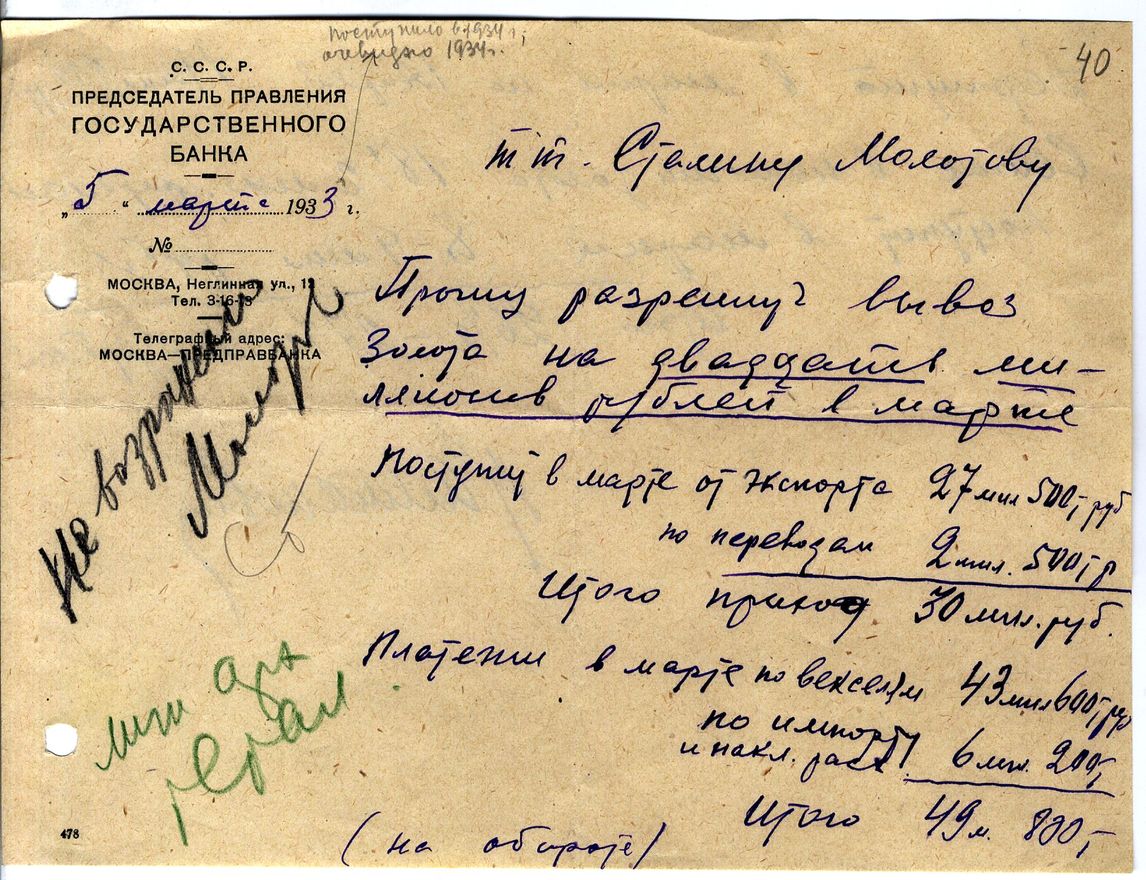 поступило в 1934 г.;
очевидно 1934 г.
40
С. С. С. Р.
ПРЕДСЕДАТЕЛЬ ПРАВЛЕНИЯ
ГОСУДАРСТВЕННОГО
БАНКА
„5“ марта 1933 г.
№
МОСКВА, Неглинная ул., 12
Тел. 3-16-13
Телеграфный адрес:
МОСКВА—ПРЕДПРАВБАНКА
тт. Сталину Молотову
Прошу разрешить вывоз
золота на двадцать ми-
ллионов рублей в марте
Поступит в марте от экспорта 27 мил 500 т руб
по переводам 2 мил. 500 т р
Итого приход 30 мил. руб.
Платежи в марте по векселям 43 мил 600 т руб
по импорту
и накл. расх. 6 мил. 200 т
Итого 49 м. 800 т
(на обороте)
Не возражаю
Молотов
478